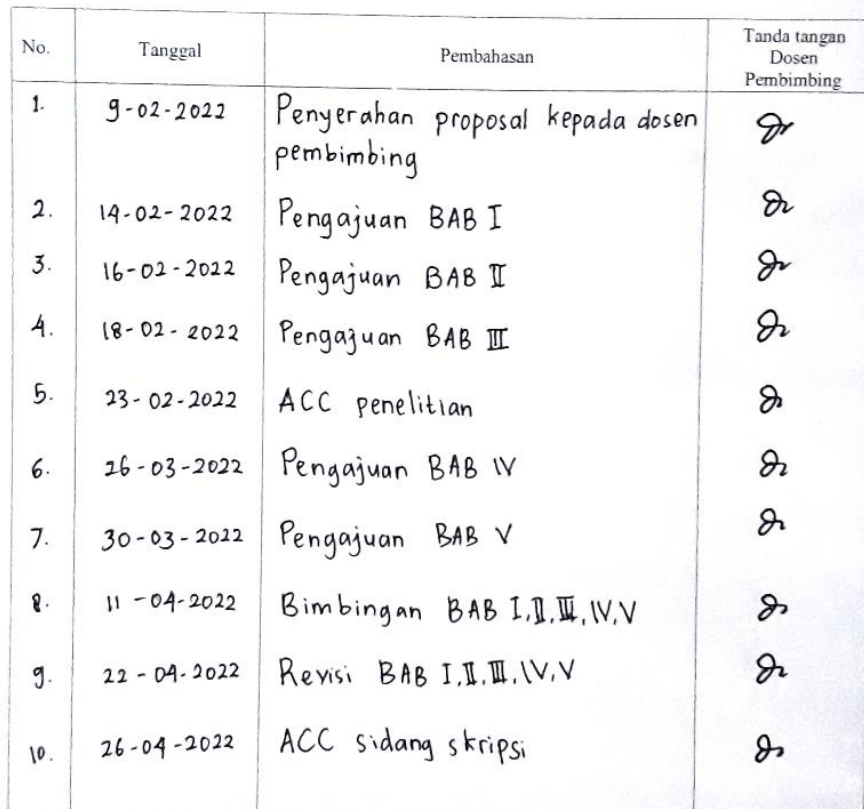 No. Tanggal Pembahasan Tanda tangan
Dosen
Pembimbing
1. 9-02-2022 Penyerahan proposal kepada dosen
pembimbing
2. 14-02-2022 Pengajuan BAB I
3. 16-02-2022 Pengajuan BAB II
4. 18-02-2022 Pengajuan BAB III
5. 23-02-2022 ACC penelitian
6. 26-03-2022 Pengajuan BAB IV
7. 30-03-2022 Pengajuan BAB V
8. 11-04-2022 Bimbingan BAB I,II,III,IV,V
9. 22-04-2022 Revisi BAB I,II,III,IV,V
10. 26-04-2022 ACC sidang skripsi